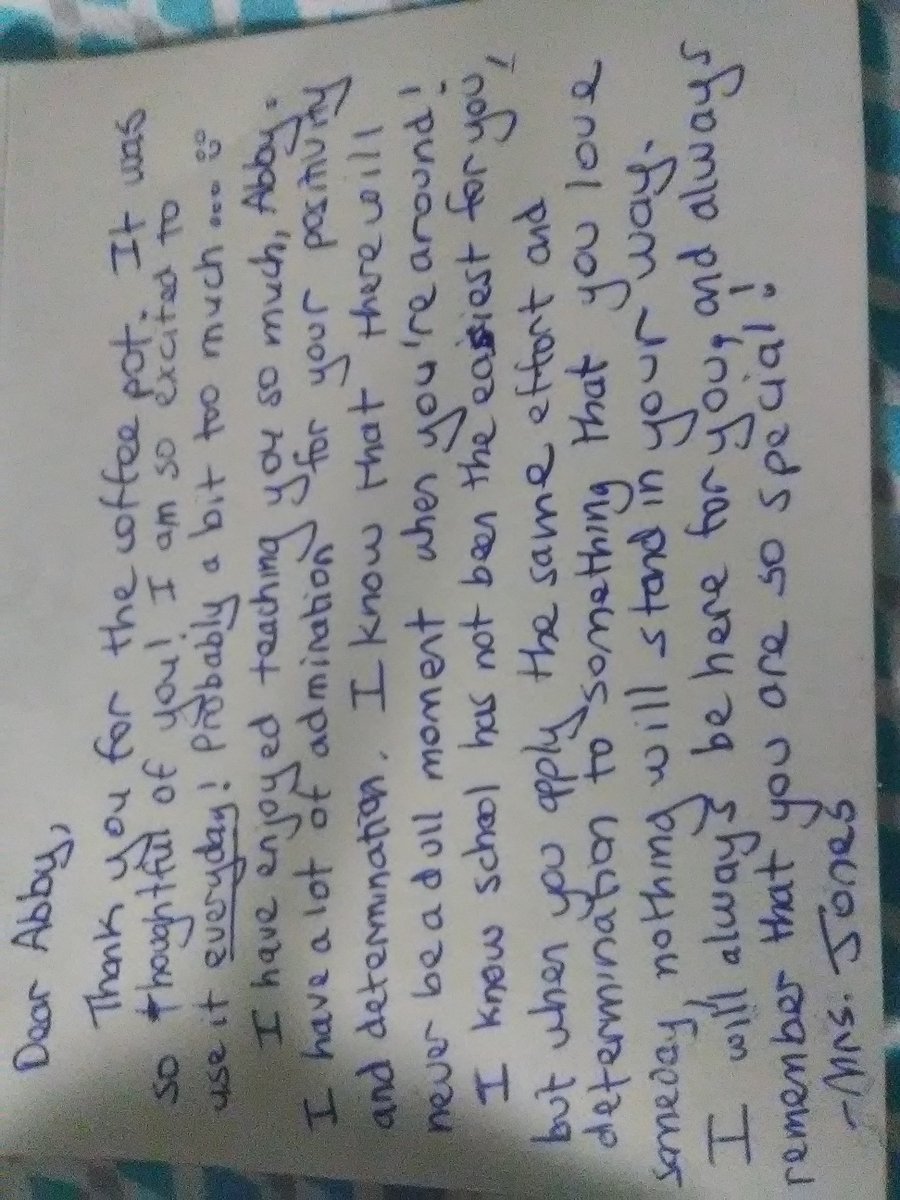 Dear Abby,
Thank you for the coffee pot. It was
so thoughtful of you! I am so excited to
use it everyday! Probably a bit too much... :)
I have enjoyed teaching you so much, Abby.
I have a lot of admiration for your positivity
and determination. I know that there will
never be a dull moment when you're around!
I know school has not been the easiest for you,
but when you apply the same effort and
determination to something that you love
someday nothing will stand in your way.
I will always be here for you, and always
remember that you are so special!
-Mrs. Jones